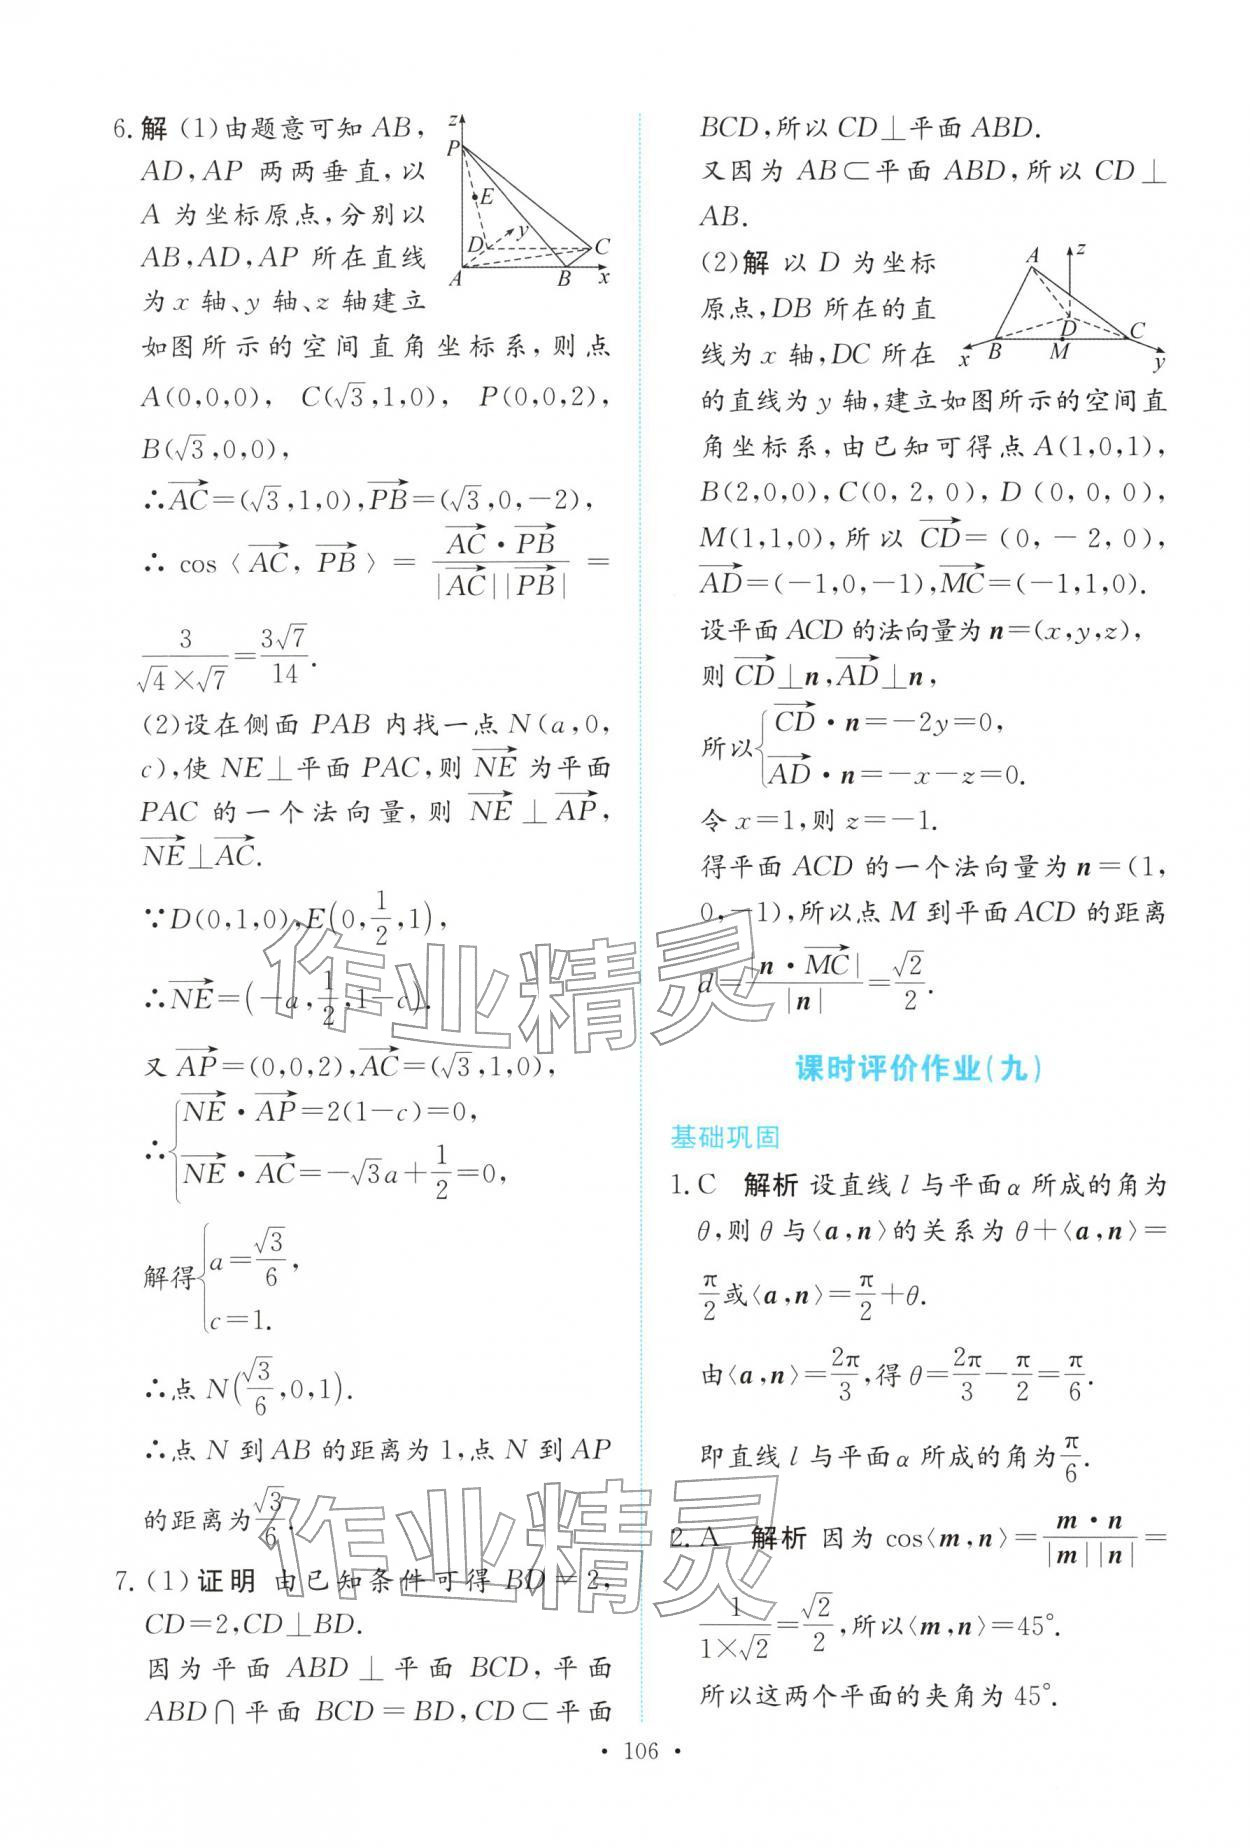 6. 解 (1)由题意可知 AB,
AD,AP 两两垂直,以
A 为坐标原点,分别以
AB,AD,AP 所在直线
为 x 轴、y 轴、z 轴建立
如图所示的空间直角坐标系,则点
A(0,0,0), C(√3,1,0), P(0,0,2),
B(√3,0,0),
z
P
E
D
y
C
A
B
x
∴→AC=(√3,1,0),→PB=(√3,0,-2),
∴ cos〈→AC, →PB〉= (→AC·→PB)/(|→AC||→PB|) =
3/(√4×√7)=3√7/14.
(2)设在侧面 PAB 内找一点 N(a,0,
c),使 NE⊥平面 PAC,则 →NE 为平面
PAC 的一个法向量,则 →NE⊥→AP,
→NE⊥→AC.
∵D(0,1,0),E(0,1/2,1),
∴→NE=(-a,1/2,1-c).
又 →AP=(0,0,2),→AC=(√3,1,0),
∴{→NE·→AP=2(1-c)=0,
→NE·→AC=-√3a+1/2=0,
解得{a=√3/6,
c=1.
∴点 N(√3/6,0,1).
∴点 N 到 AB 的距离为 1,点 N 到 AP
的距离为√3/6.
7. (1)证明 由已知条件可得 BD=2,
CD=2,CD⊥BD.
因为平面 ABD⊥平面 BCD,平面
ABD∩平面 BCD=BD,CD⊂平面
BCD,所以 CD⊥平面 ABD.
又因为 AB⊂平面 ABD,所以 CD⊥
AB.
(2)解 以 D 为坐标
原点,DB 所在的直
线为 x 轴,DC 所在
的直线为 y 轴,建立如图所示的空间直
角坐标系,由已知可得点 A(1,0,1),
B(2,0,0),C(0,2,0),D(0,0,0),
M(1,1,0),所以 →CD=(0,-2,0),
→AD=(-1,0,-1),→MC=(-1,1,0).
A
z
D
C
x
B
M
y
设平面 ACD 的法向量为 n=(x,y,z),
则 →CD⊥n,→AD⊥n,
所以{→CD·n=-2y=0,
→AD·n=-x-z=0.
令 x=1,则 z=-1.
得平面 ACD 的一个法向量为 n=(1,
0,-1),所以点 M 到平面 ACD 的距离
d=|n·→MC|/|n|=√2/2.
课时评价作业(九)
基础巩固
1. C 解析 设直线 l 与平面 α 所成的角为
θ,则 θ 与〈a,n〉的关系为 θ+〈a,n〉=
π/2或〈a,n〉=π/2+θ.
由〈a,n〉=2π/3,得 θ=2π/3-π/2=π/6.
即直线 l 与平面 α 所成的角为π/6.
2. A 解析 因为 cos〈m,n〉=(m·n)/(|m||n|)=
1/(1×√2)=√2/2,所以〈m,n〉=45°.
所以这两个平面的夹角为 45°.
作业精灵
作业精灵
· 106 ·